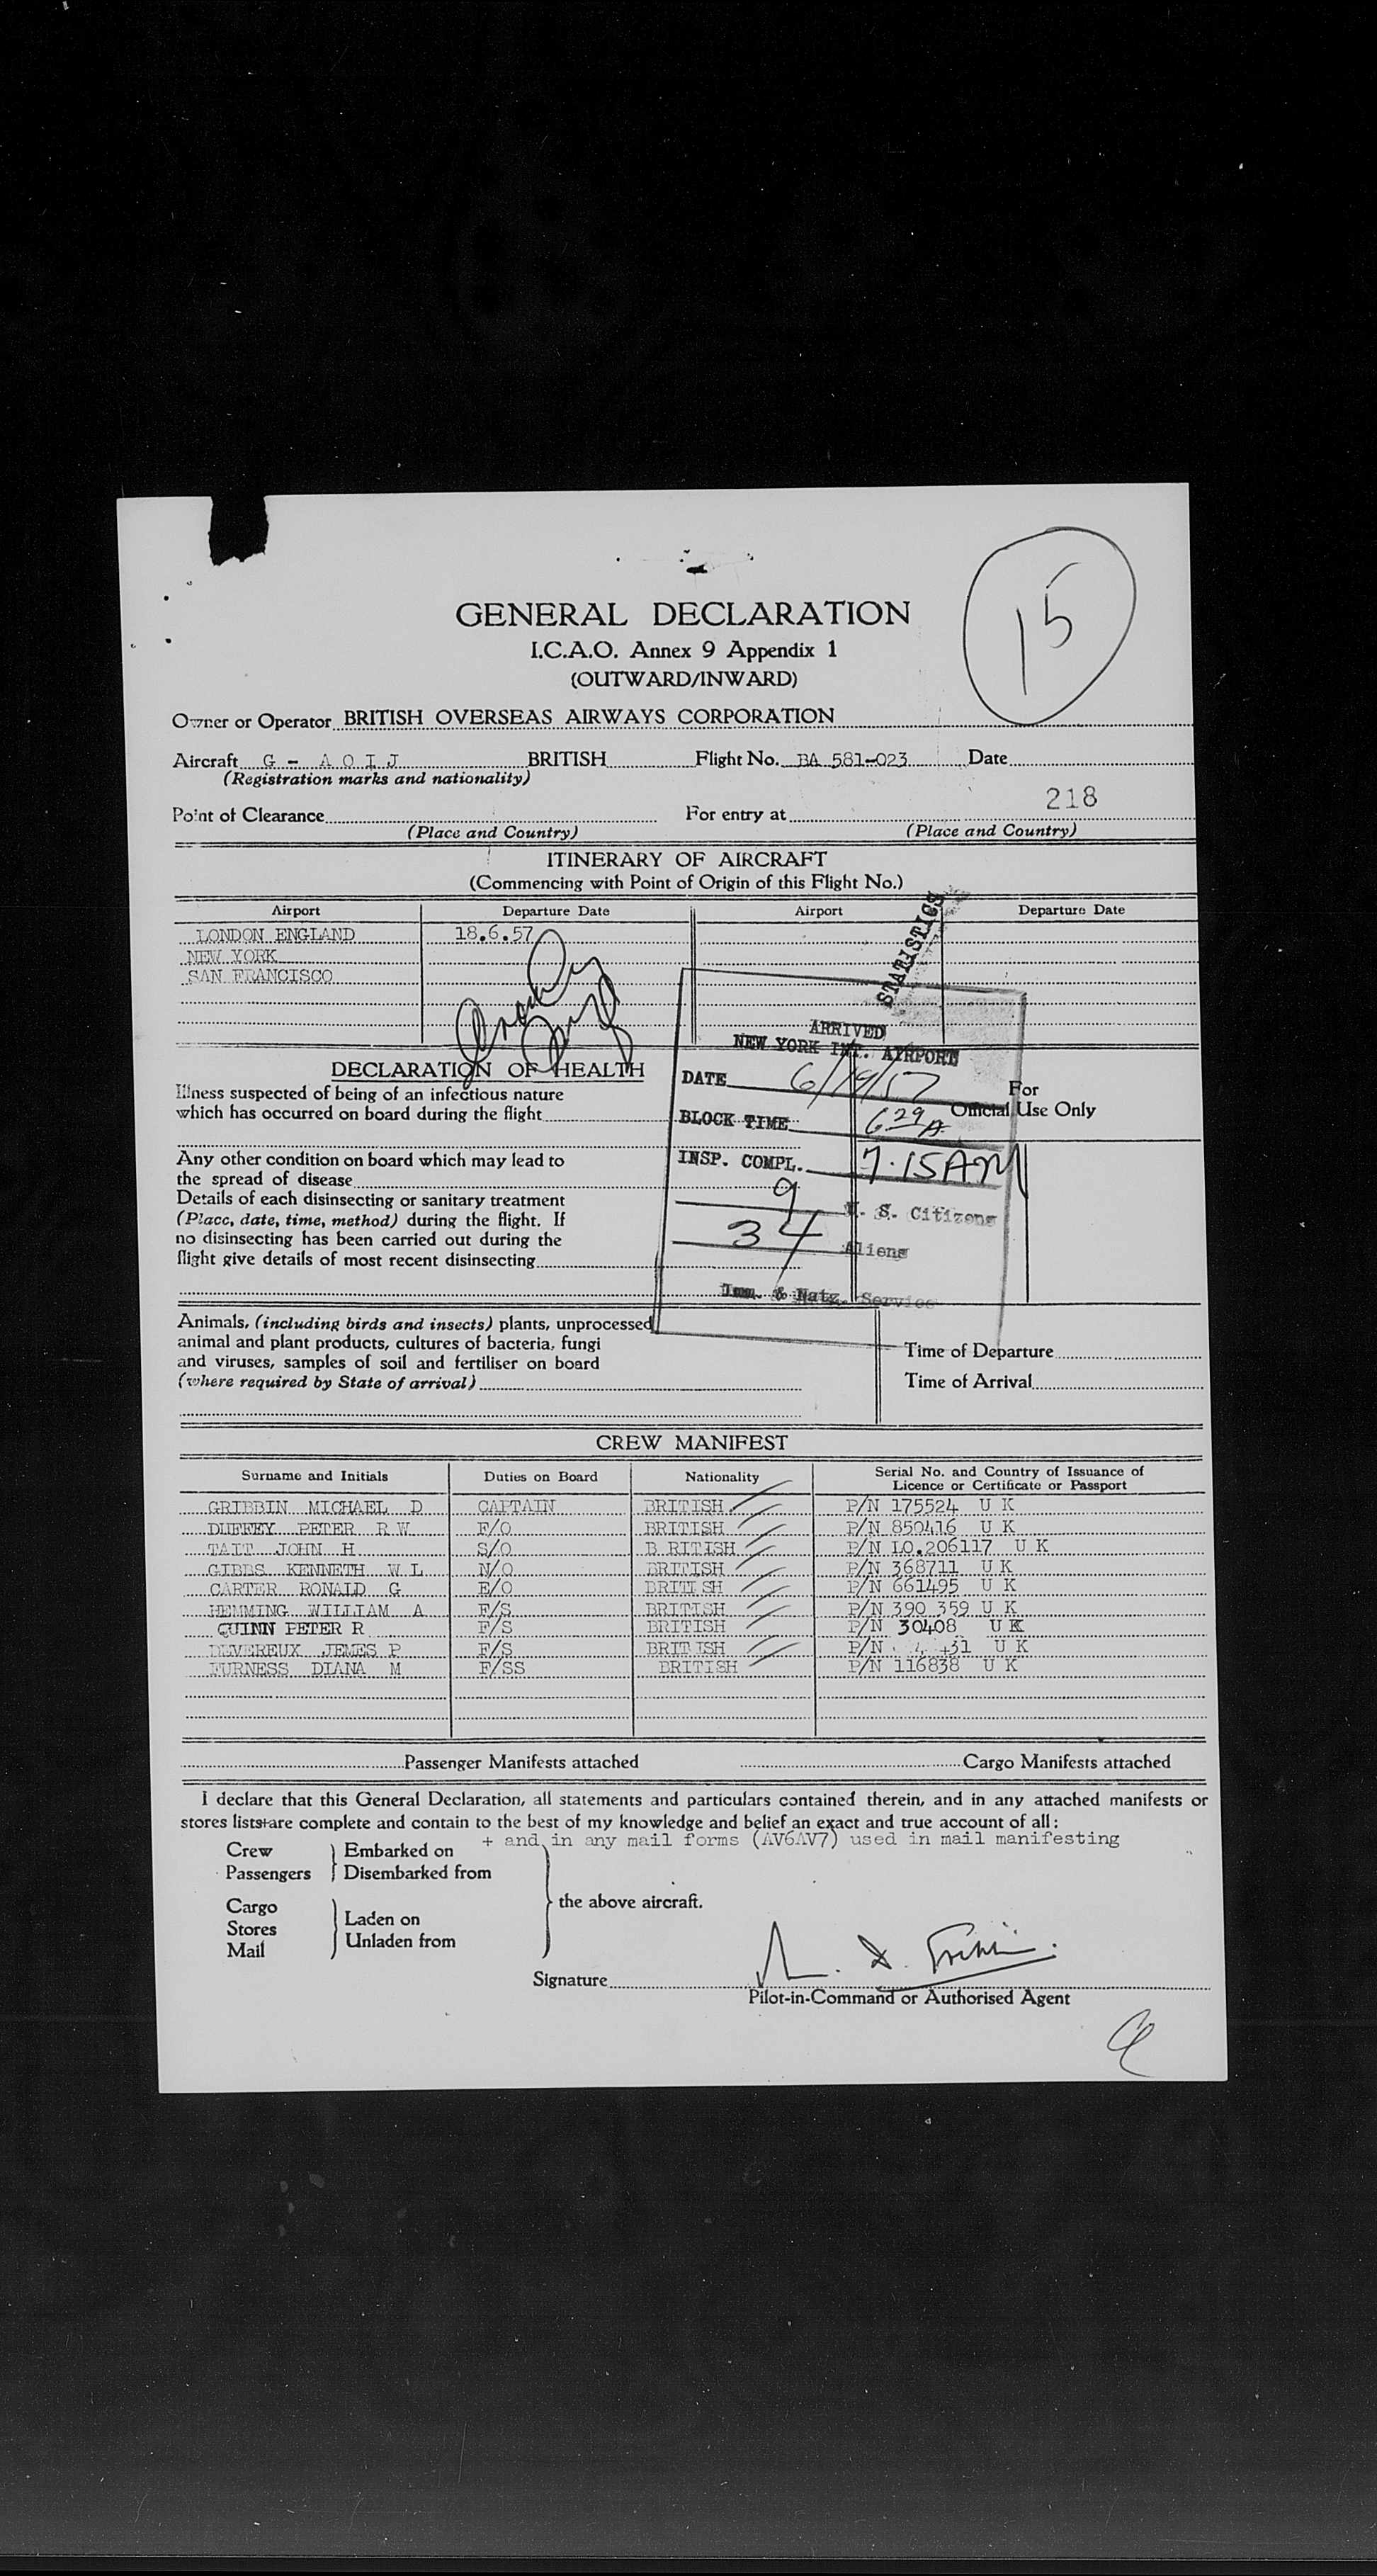 15
GENERAL DECLARATION
I.C.A.O. Annex 9 Appendix 1
(OUTWARD/INWARD)
Owner or Operator BRITISH OVERSEAS AIRWAYS CORPORATION
Aircraft G - A O I J BRITISH Flight No. BA 581-023 Date
(Registration marks and nationality)
218
Point of Clearance For entry at
(Place and Country) (Place and Country)
ITINERARY OF AIRCRAFT
(Commencing with Point of Origin of this Flight No.)
Airport Departure Date Airport Departure Date
LONDON ENGLAND 18.6.57
NEW YORK
SAN FRANCISCO
STATISTICS
ARRIVED
NEW YORK INT. AIRPORT
DATE 6/19/57
BLOCK TIME 6 29 A
INSP. COMPL. 7.15 AM
9 U. S. Citizens
34 Aliens
Imm. & Natz. Service
For
Official Use Only
DECLARATION OF HEALTH
Illness suspected of being of an infectious nature
which has occurred on board during the flight
Any other condition on board which may lead to
the spread of disease
Details of each disinsecting or sanitary treatment
(Place, date, time, method) during the flight. If
no disinsecting has been carried out during the
flight give details of most recent disinsecting
Animals, (including birds and insects) plants, unprocessed
animal and plant products, cultures of bacteria, fungi
and viruses, samples of soil and fertiliser on board
(where required by State of arrival)
Time of Departure
Time of Arrival
CREW MANIFEST
Surname and Initials Duties on Board Nationality Serial No. and Country of Issuance of
Licence or Certificate or Passport
GRIBBIN MICHAEL D CAPTAIN BRITISH P/N 175524 U K
DUFFEY PETER R W F/O BRITISH P/N 850416 U K
TAIT JOHN H S/O B RITISH P/N LO.206117 U K
GIBBS KENNETH W L N/O BRITISH P/N 368711 U K
CARTER RONALD G E/O BRITI SH P/N 661495 U K
HEMMING WILLIAM A F/S BRITISH P/N 390 359 U K
QUINN PETER R F/S BRITISH P/N 30408 U K
DEVEREUX JEMES P F/S BRITISH P/N 431 U K
FURNESS DIANA M F/SS BRITISH P/N 116838 U K
Passenger Manifests attached Cargo Manifests attached
I declare that this General Declaration, all statements and particulars contained therein, and in any attached manifests or
stores lists+are complete and contain to the best of my knowledge and belief an exact and true account of all:
+ and in any mail forms (AV6AV7) used in mail manifesting
Crew Embarked on
Passengers Disembarked from
the above aircraft.
Cargo
Stores Laden on
Mail Unladen from
Signature M. D. Gribbin.
Pilot-in-Command or Authorised Agent